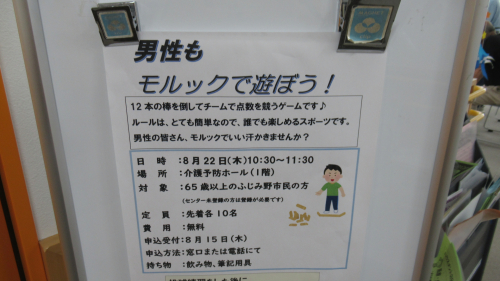 男性も
モルックで遊ぼう！
12本の棒を倒してチームで点数を競うゲームです♪
ルールは、とても簡単なので、誰でも楽しめるスポーツです。
男性の皆さん、モルックでいい汗かきませんか？
日 時 ：8月22日(木)10:30～11:30
場 所 ：介護予防ホール(1階)
対 象 ：65歳以上のふじみ野市民の方
(センター未登録の方は登録が必要です)
定 員 ：先着各10名
費 用 ：無料
申込受付：8月15日(木)
申込方法：窓口または電話にて
持ち物 ：飲み物、筆記用具